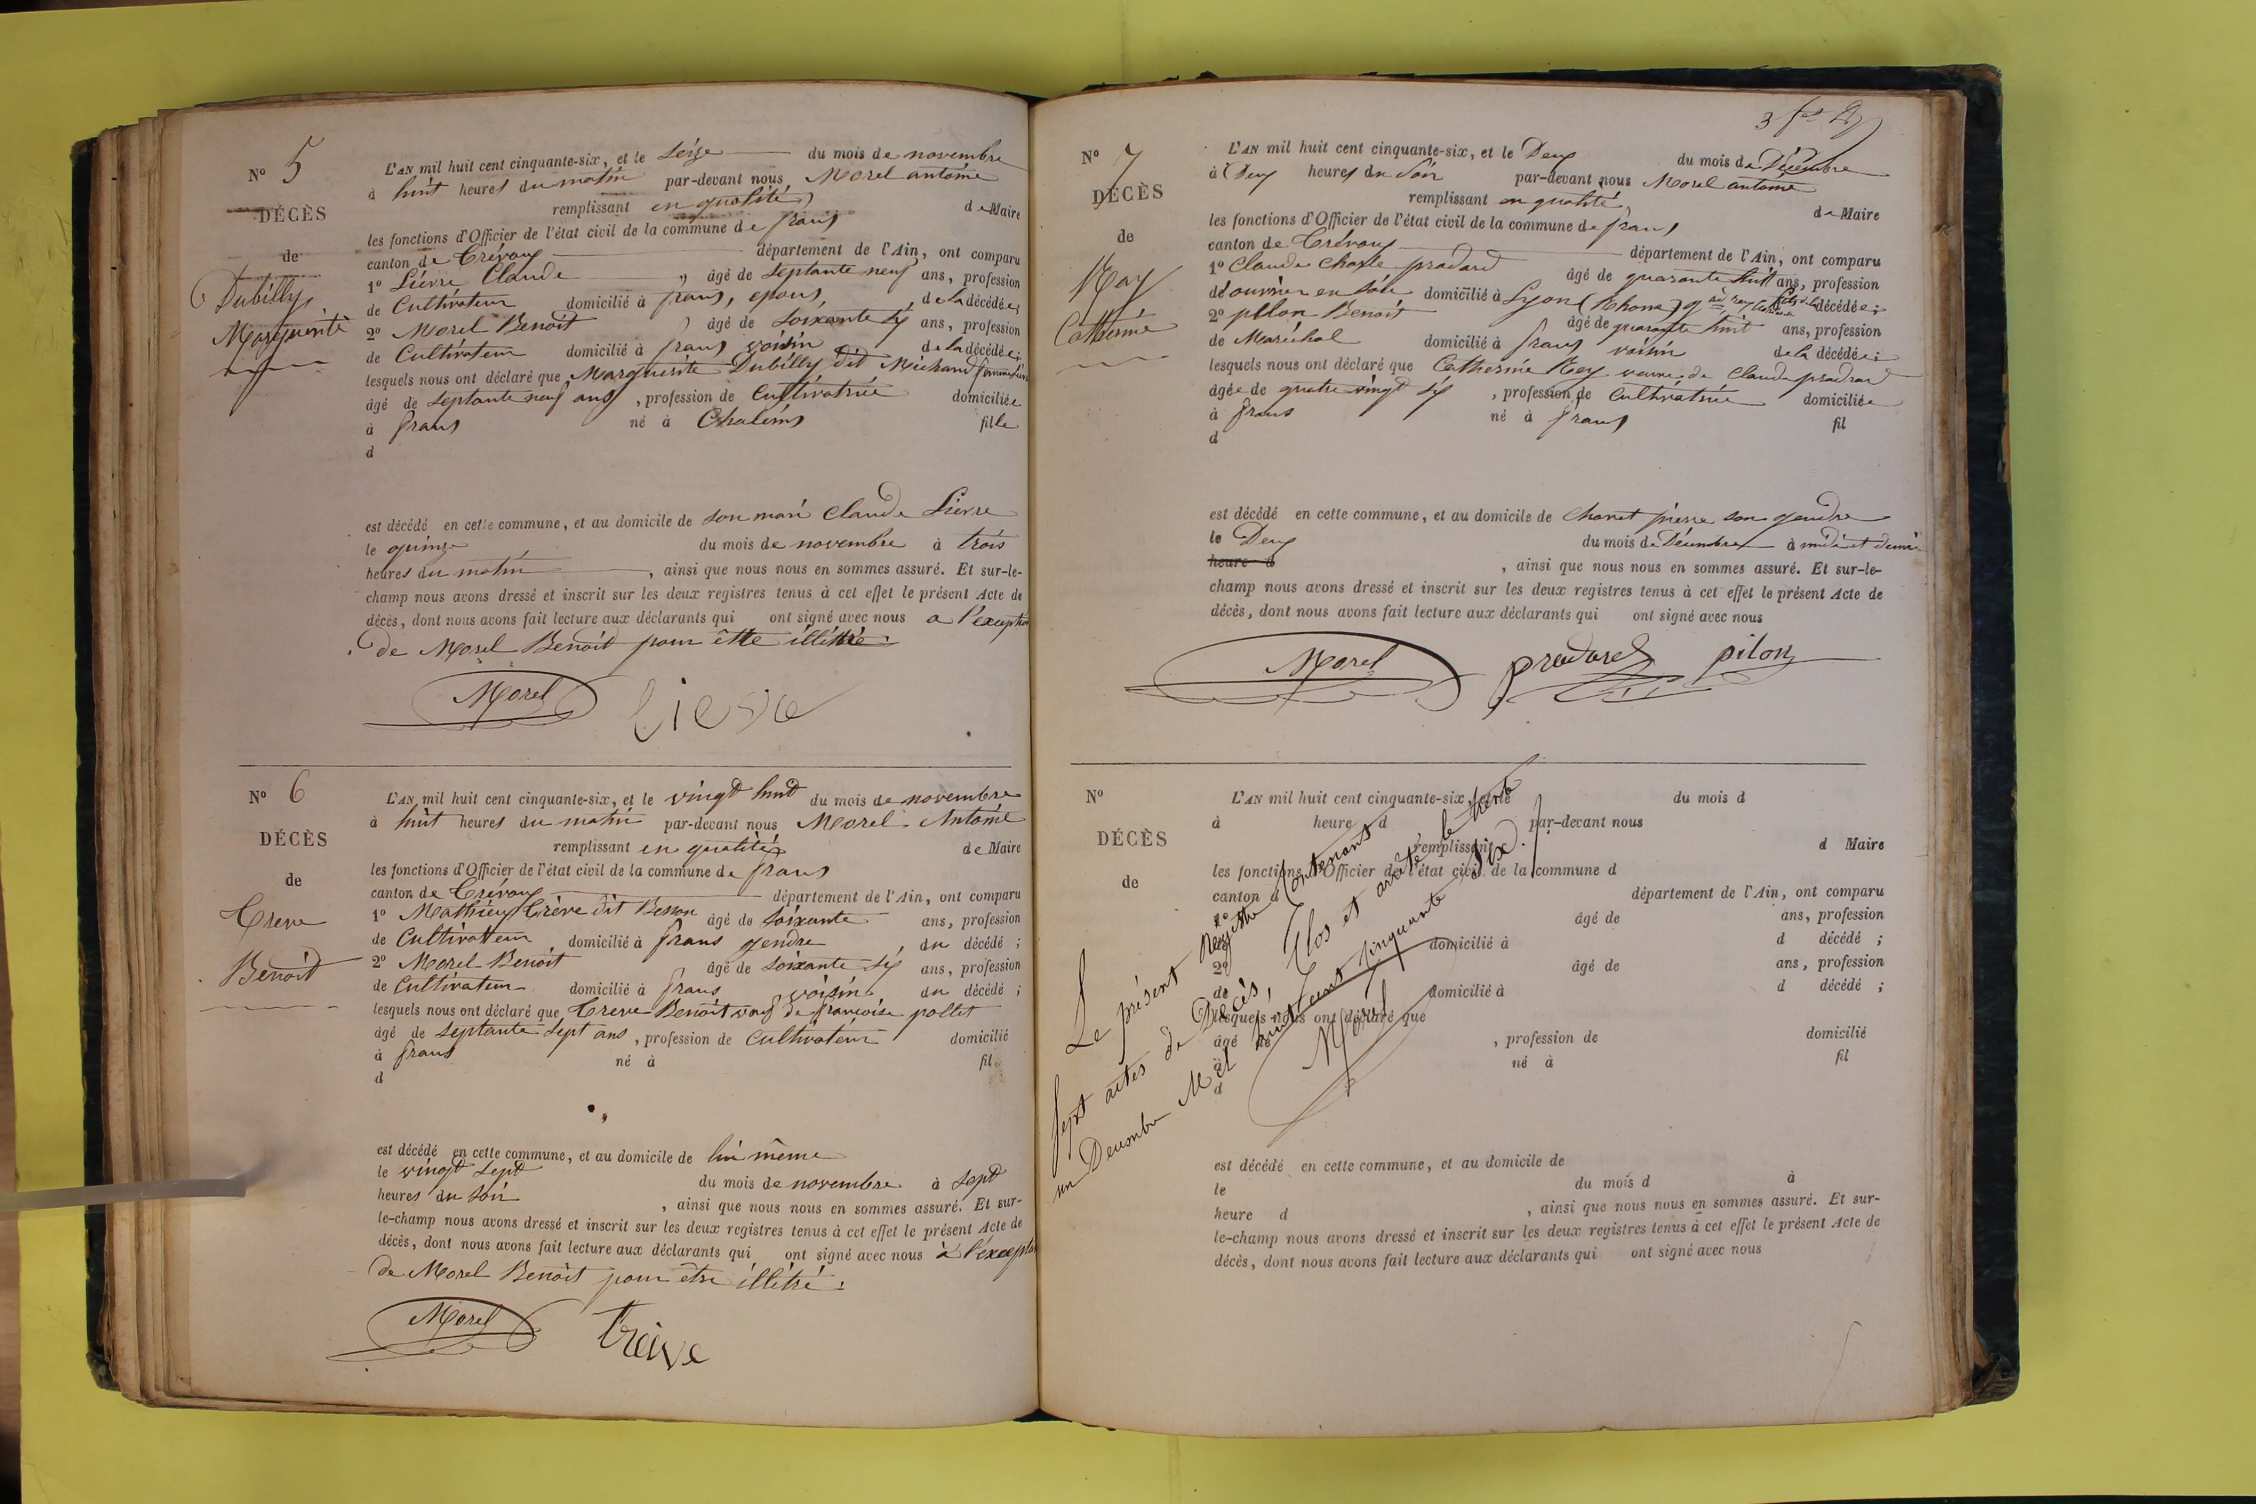 Nº 5
DÉCÈS
de
Dubilly
Marguerite
L'AN mil huit cent cinquante-six, et le seize du mois de novembre
à huit heures du matin par-devant nous Morel antoine
remplissant en qualité de Maire
les fonctions d'Officier de l'état civil de la commune de frans
canton de Trévoux département de l'Ain, ont comparu
1º Lièvre Claude âgé de septante neuf ans, profession
de Cultivateur domicilié à frans, epoux, de la décédée;
2º Morel Benoit âgé de soixante six ans, profession
de Cultivateur domicilié à frans voisin de la décédée;
lesquels nous ont déclaré que Marguerite Dubilly dit Michaud femme
âgé de septante neuf ans, profession de Cultivatrice domiciliée
à frans né à Chaleins fille
d
est décédé en cette commune, et au domicile de son mari Claude Lievre
le quinze du mois de novembre à trois
heures du matin, ainsi que nous nous en sommes assuré. Et sur-le-
champ nous avons dressé et inscrit sur les deux registres tenus à cet effet le présent Acte de
décès, dont nous avons fait lecture aux déclarants qui ont signé avec nous a l'exception
de Morel Benoit pour être illétré.
Morel Lievre
Nº 6
DÉCÈS
de
Creve
Benoit
L'AN mil huit cent cinquante-six, et le vingt huit du mois de novembre
à huit heures du matin par-devant nous Morel Antoine
remplissant en qualité de Maire
les fonctions d'Officier de l'état civil de la commune de frans
canton de Trévoux département de l'Ain, ont comparu
1º Mathieu Crève dit Besson âgé de soixante ans, profession
de Cultivateur, domicilié à frans gendre, du décédé;
2º Morel Benoit âgé de soixante six ans, profession
de Cultivateur domicilié à frans voisin du décédé;
lesquels nous ont déclaré que Creve Benoit veuf de françoise pollet
âgé de septante sept ans, profession de Cultivateur domicilié
à frans né à fil
d
est décédé en cette commune, et au domicile de lui même
le vingt sept du mois de novembre à sept
heures du soir, ainsi que nous nous en sommes assuré. Et sur-
le-champ nous avons dressé et inscrit sur les deux registres tenus à cet effet le présent Acte de
décès, dont nous avons fait lecture aux déclarants qui ont signé avec nous à l'exception
de Morel Benoit pour être illétré.
Morel treive
Nº 7
DÉCÈS
de
Ray
Catherine
L'AN mil huit cent cinquante-six, et le Deux du mois de Décembre
à Deux heures du soir par-devant nous Morel antoine
remplissant en qualité de Maire
les fonctions d'Officier de l'état civil de la commune de frans
canton de Trévoux département de l'Ain, ont comparu
1º Claude Charle pradard âgé de quarante huit ans, profession
de ouvrier en soie domicilié à Lyon (Rhone) décédée;
2º pilon Benoit âgé de quarante huit ans, profession
de Maréchal domicilié à frans voisin de la décédée;
lesquels nous ont déclaré que Catherine Rey veuve de Claude pradard
âgée de quatre vingt six, profession de Cultivatrice domiciliée
à frans né à frans fil
d
est décédé en cette commune, et au domicile de Chanet pierre son gendre
le Deux du mois de Décembre à midi et demi
heure d, ainsi que nous nous en sommes assuré. Et sur-le-
champ nous avons dressé et inscrit sur les deux registres tenus à cet effet le présent Acte de
décès, dont nous avons fait lecture aux déclarants qui ont signé avec nous
Morel pradard pilon
Nº
DÉCÈS
de
L'AN mil huit cent cinquante-six, et le du mois d
à heure d par-devant nous
remplissant d Maire
les fonctions d'Officier de l'état civil de la commune d
canton d département de l'Ain, ont comparu
1º âgé de ans, profession
de domicilié à d décédé;
2º âgé de ans, profession
de domicilié à d décédé;
lesquels nous ont déclaré que
âgé de, profession de domicilié
à né à fil
d
est décédé en cette commune, et au domicile de
le du mois d à
heure d, ainsi que nous nous en sommes assuré. Et sur-
le-champ nous avons dressé et inscrit sur les deux registres tenus à cet effet le présent Acte de
décès, dont nous avons fait lecture aux déclarants qui ont signé avec nous
Le présent Registre Contenant
sept actes de Décès, Clos et arrêté le trente
un Decembre Mil huit cent cinquante Six.
Morel